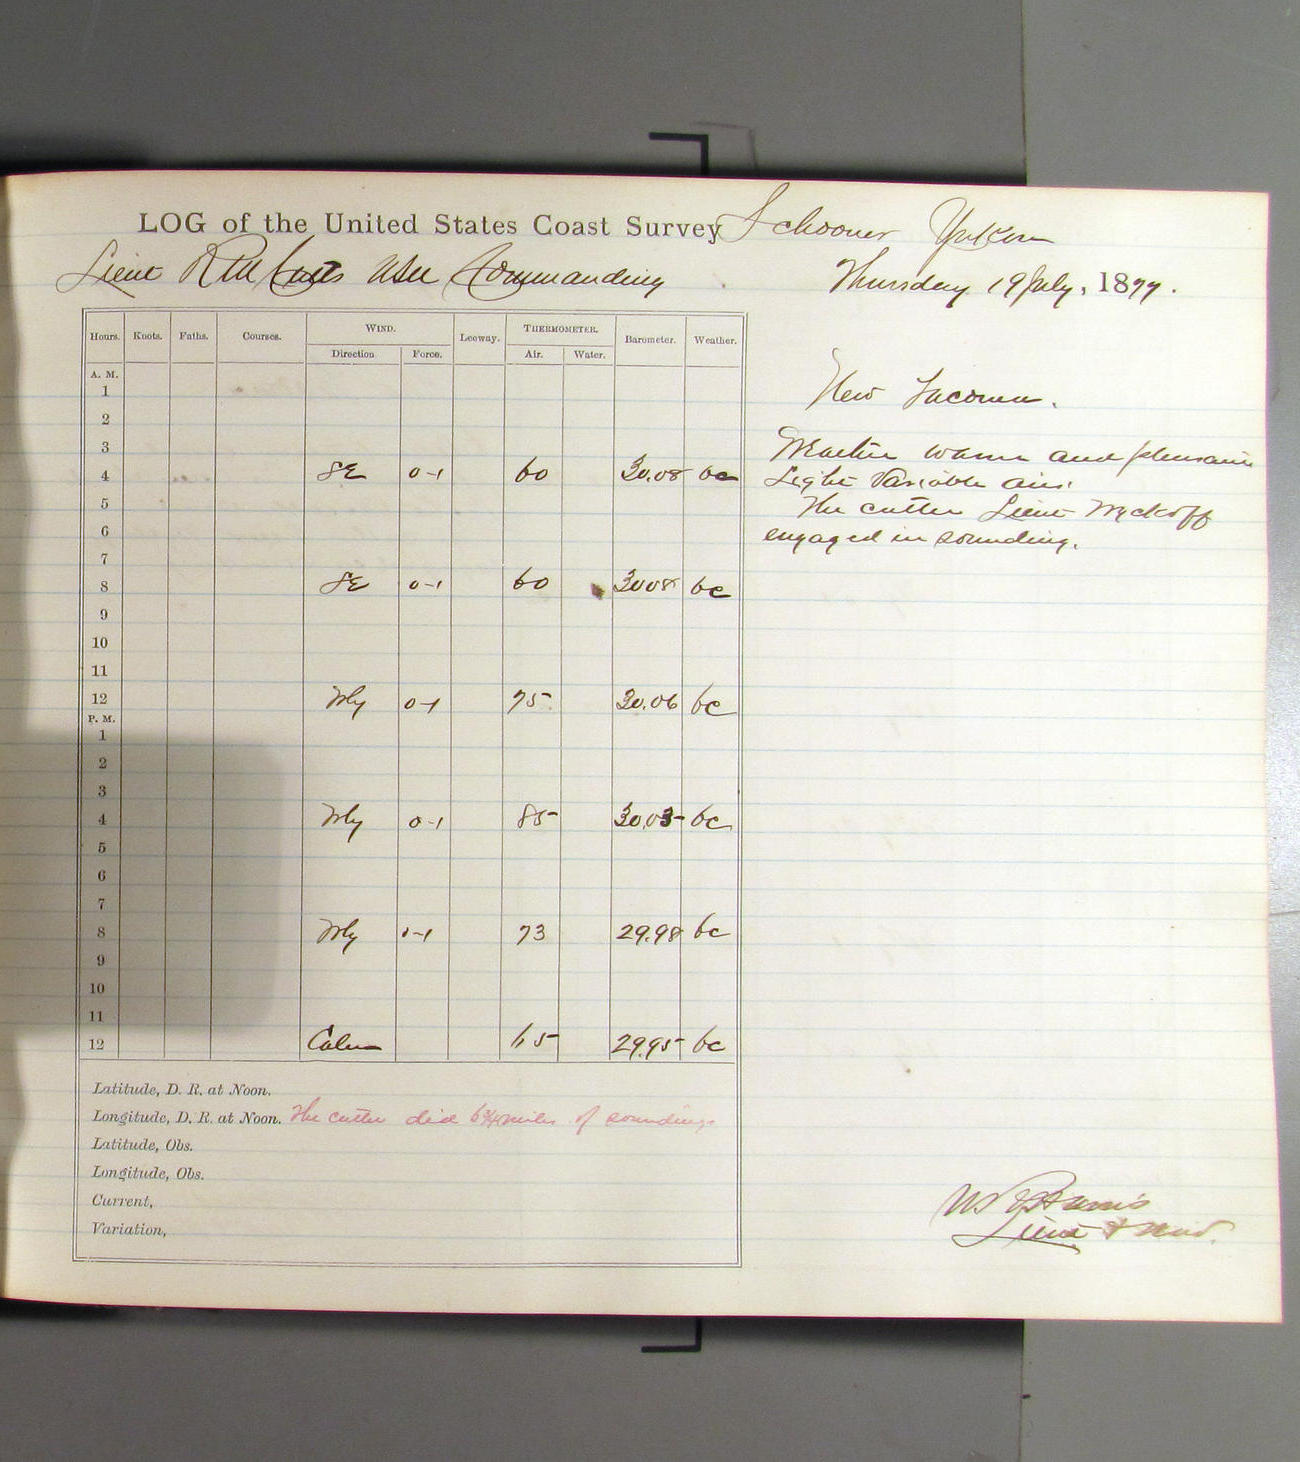 LOG of the United States Coast Survey Schooner Yukon
Lieut R M Cutts USN Commanding
Thursday 19 July, 1877.
Hours. Knots. Faths. Courses. WIND. Leeway. THERMOMETER. Barometer. Weather.
Direction Force. Air. Water.
A. M.
1
2
3
4 SE 0-1 60 30.08 bc
5
6
7
8 SE 0-1 60 30.08 bc
9
10
11
12 Wly 0-1 75 30.06 bc
P. M.
1
2
3
4 Wly 0-1 85 30.03 bc
5
6
7
8 Wly 0-1 73 29.98 bc
9
10
11
12 Calm 65 29.95 bc
Latitude, D. R. at Noon.
Longitude, D. R. at Noon. The cutter did 6¾ miles of soundings
Latitude, Obs.
Longitude, Obs.
Current,
Variation,
New Tacoma.
Weather warm and pleasant
Light variable airs.
The cutter Lieut Wyckoff
engaged in sounding.
Lieut &